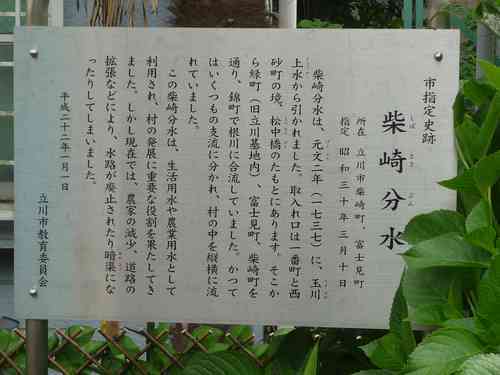 市指定史跡
柴崎分水
しばさきぶんすい
所在 立川市柴崎町、富士見町
指定 昭和三十年三月十日
柴崎分水は、元文二年（一七三七）に、玉川
上水から引かれました。取入れ口は一番町と西
砂町の境、松中橋のたもとにあります。そこか
ら緑町（旧立川基地内）、富士見町、柴崎町を
通り、錦町で根川に合流していました。かつて
はいくつもの支流に分かれ、村の中を縦横に流
れていました。
この柴崎分水は、生活用水や農業用水として
利用され、村の発展に重要な役割を果たしてき
ました。しかし現在では、農家の減少、道路の
拡張などにより、水路が廃止されたり暗渠にな
ったりしてしまいました。
平成二十二年一月一日
立川市教育委員会